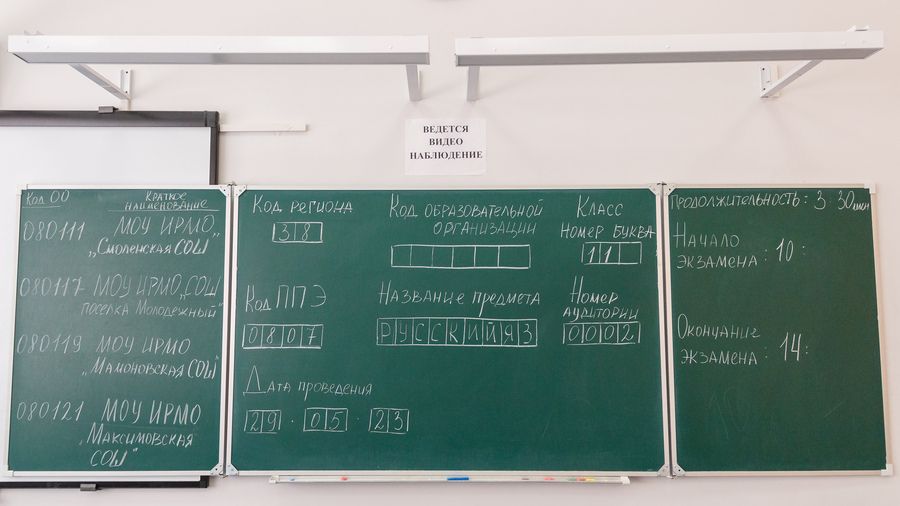 ВЕДЕТСЯ
ВИДЕО
НАБЛЮДЕНИЕ
Код ОО Краткое наименование
080111 МОУ ИРМО
„Смоленская СОШ"
080117 МОУ ИРМО „СОШ
поселка Молодежный"
080119 МОУ ИРМО
„Мамоновская СОШ"
080121 МОУ ИРМО
„Максимовская
СОШ"
Код региона
38
Код образовательной
организации
Класс
Номер Буква
11
Код ППЭ
0807
Название предмета
РУССКИЙЯЗ
Номер
аудитории
0002
Дата проведения
29 . 05 . 23
Продолжительность: 3 30мин
Начало
экзамена: 10:
Окончание
экзамена: 14: